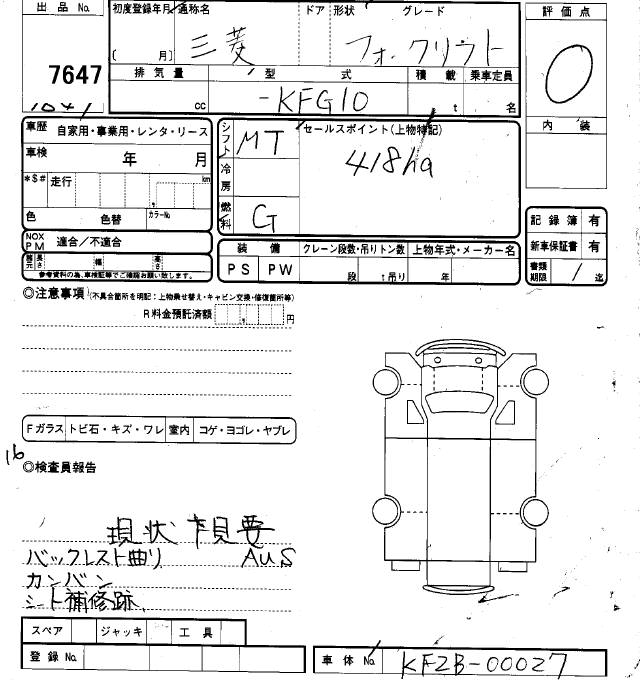 出品 No. 初度登録年月 通称名 ドア 形状 グレード 評価点
( 月) 三菱 フォークリフト 0
7647 排気量 型式 積載 乗車定員
cc -KFG10 t 名
内装
車歴 自家用・事業用・レンタ・リース シフト MT セールスポイント(上物特記)
車検 年 月 冷房 418ha
*$# 走行 km
色 色替 カラーNo. 燃料 G 記録簿 有
NOX PM 適合/不適合 装備 クレーン段数・吊りトン数 上物年式・メーカー名 新車保証書 有
諸元 長さ 幅 高さ PS PW 段 t吊り 年 書類期限 / 迄
参考資料の為、車検証等でご確認お願い致します。
◎注意事項 (不具合箇所を明記:上物乗せ替え・キャビン交換・修復箇所等)
R料金預託済額 円
Fガラス トビ石・キズ・ワレ 室内 コゲ・ヨゴレ・ヤブレ
16
◎検査員報告
現状 下見要
バックレスト曲り AuS
カンバン
シート補修跡
スペア ジャッキ 工具
登録 No. 車体 No. KFZB-00027